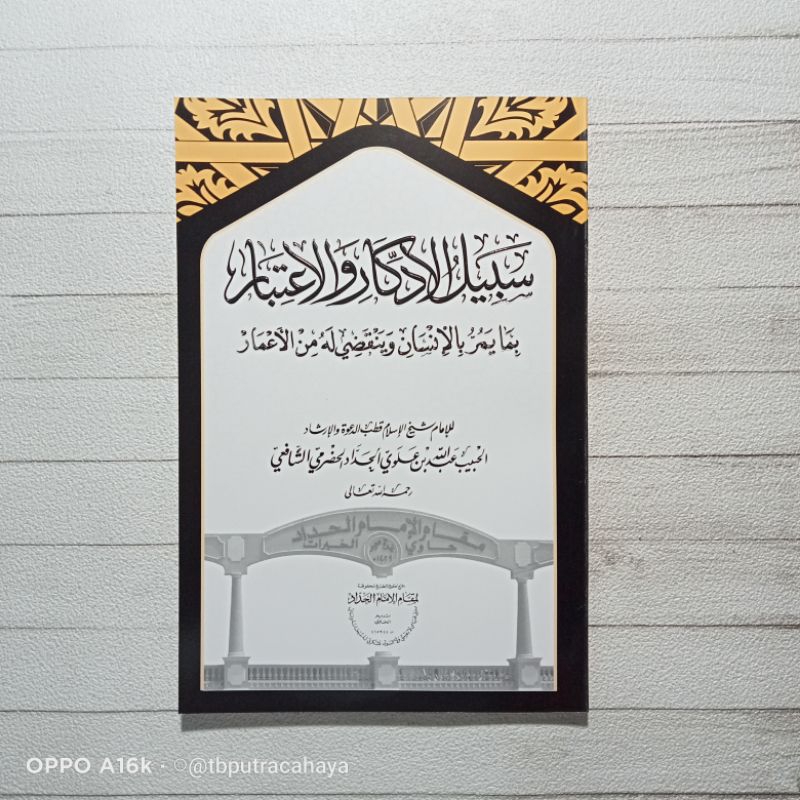 سَبِيلُ الِادِّكَارِ وَالِاعْتِبَارِ
بِمَا يَمُرُّ بِالْإِنْسَانِ وَيَنْقَضِي لَهُ مِنَ الْأَعْمَارِ
للإمام شيخ الإسلام قطب الدعوة والإرشاد
الحبيب عبد الله بن علوي الحداد الحضرمي الشافعي
رحمه الله تعالى
مقام الإمام الحداد
حاوي الخيرات
لمقام الإمام الحداد
OPPO A16k · @tbputracahaya